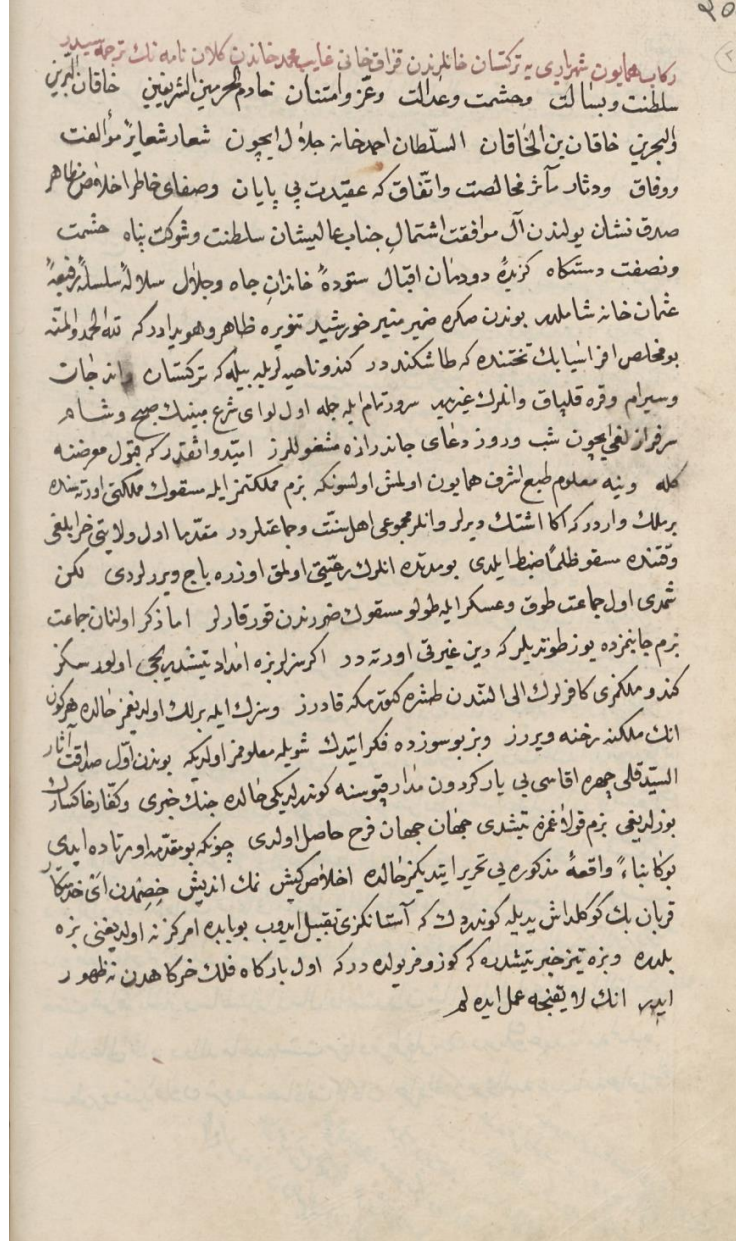 ٢٥
٢
ركاب همايون شهرياري يه تركستان خانلرندن قزاق خاني غايب محمد خاندن كلان نامه نك ترجمه سيدر
سلطنت وبسالت وحشمت وعدالت وعز وامتنان خادم الحرمين الشريفين خاقان البرين
والبحرين خاقان بن الخاقان السلطان احمد خانه جلال ايچون شعار شعاير مؤالفت
ووفاق ودثار مآثر مخالصت واتفاق كه عقيدت بي پايان وصفاى خاطر اخلاص مظاهر
صدق نشان يولندن آل موافقت اشتمال جناب عاليشان سلطنت وشوكت پناه حشمت
ونصفت دستكاه كزيدهٔ دودمان اقبال ستودهٔ خاندان جاه وجلال سلالهٔ سلسلهٔ رفيعهٔ
عثمان خانه شاملدر بوندن صكره ضمير منير خورشيد تنويره ظاهر وهويدادر كه لله الحمد والمنه
بو مخلص افراسيابك تختنده كه طاشكنددر كندو ناحيه لريله بيله كه تركستان واندجات
وسيرام وقره قلپاق وانلرك غيريدر سرور تمام ايله جمله اول لواى شرع مبينك صبح وشام
سرفرازلغي ايچون شب وروز دعاى جاندرازه مشغوللرز اميد واثقدر كه قبول معرضنه
كله وينه معلوم طبع اشرف همايون اولمش اولسونكه بزم مملكتمز ايله مسقوك مملكتي اورته سنده
بر ملك واردر كه اكا اشتك ديرلر وانلر مجموعي اهل سنت وجماعتلردر مقدما اول ولايتي خرابلغي
وقتنده مسقو ظلما ضبط ايلدي بو مدتده انلرك رعيتي اولمق اوزره باج ويررلردي لكن
شمدي اول جماعت طوق وعسكر ايله طولو مسقوك ضررندن قورقارلر اما ذكر اولنان جماعت
بزم جانبمزده يوز طوتديلر كه دين غيرتي اورته در اكر سزلر بزه امداد يتشديريجي اولورسكز
كندو ملكلري كافرلرك الي التندن طشره كتورمكه قادرز وسزك ايله برلك اولديغمز حالده هر كون
انك ملكنه رخنه ويررز وبز بو سوزده فكر ايتدك شويله معلوممز اولديكه بوندن اول صداقت آثار
السيد قلي چهره اقاسي بي يار كردون مدار قپوسنه كوندرلديكي حالده جنك خبري وكفار خاكسارك
بوزلديغي بزم قولاغمزه يتشدي جهان جهان فرح حاصل اولدي چونكه بو مقدمه اورتاده ايدي
بوكا بناء واقعهٔ مذكوره يي تحرير ايتديكمز حالده اخلاص كيش نمك انديش خصمندن اتي خدمتكار
قربان بك كوكلداش يديله كوندردك كه آستانكزي تقبيل ايدوب بو بابده امركز نه اولديغني بزه
بلدره وبزه تيز خبر يتشدره كه كوزومز يولده در كه اول باركاه فلك خركاهدن نه ظهور
ايدر انك لايقنجه عمل ايده لم